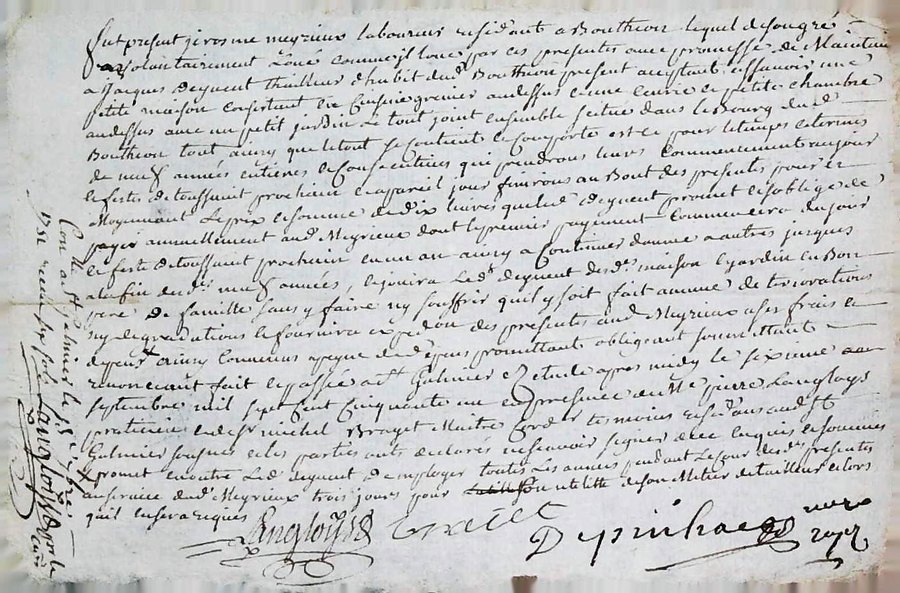 fut present jerosme meyrieux laboureur residant a Bouthеon lequel de son gré
et volontairement Loüe comme il loue par ces presentes avec promesse de Maintenir
a jacques deymet tailleur d'habit dud Boutheon present acceptant assavoir une
petite maison consistant en Cuisine grenier au dessus et une cave et petite chambre
au dessus avec un petit jardin Le tout joint ensemble scitué dans le Bourg dud
Boutheon tout ainsy que le tout se contient et comporte et ce pour le temps et termes
de neuf années entieres et Consecutives qui prendront leurs commencement au jour
et feste de toussaint prochain et a pareil jour finiront au Bout des presentes
Moyennant Le prix et somme de dix livres que led deyment promet et s'oblige de
payer annuellement aud Meyrieux dont le premier payement Commencera du jour
et feste de toussaint prochain en un an ainsy a Continuer d'année a autres jusques
a la fin desd neuf années, et jouira Led deyment desd maison et jardin en Bon
pere de famille sans y faire ny souffrir qu'il y soit fait aucune deteriorations
ny degradations et fournira expedon des presentes aud Meyrieux a ses frais et
depens ainsy Convenus a peyne de depens promittant obligeant soumettant
renonceant fait et passé a st Galmier Etude apres midy le sixieme
septembre mil sept cent Cinquante un en presence de Me pierre Langloys
praticien et de sr michel Brayet Maitre Cord tesmoins resid ans aud st
Galmier sousnes et les parties ont declarés ne scavoir signer de ce enquis et sommés
promet en outre Led deyment d'employer toutes Les années pendant Le cour desd presentes
au service dud Meyrieux trois jours pour utilité de son Metier de tailleur et lors
qu'il en sera requis
Langloys
Depinhac nore
royal
Con a st galmier le
1751 recu six sols
Langloys